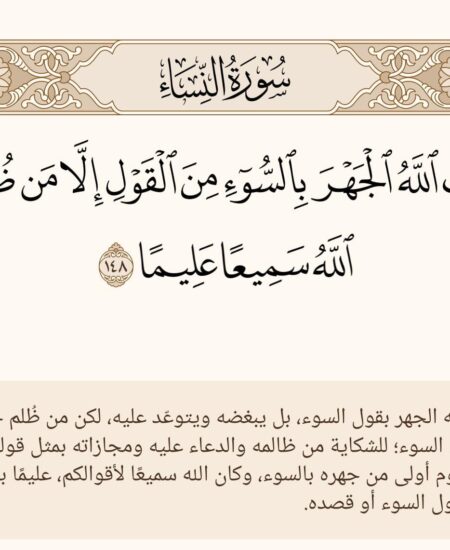 سُورَةُ النِّسَاءِ
ٱللَّهُ ٱلۡجَهۡرَ بِٱلسُّوٓءِ مِنَ ٱلۡقَوۡلِ إِلَّا مَن
ٱللَّهُ سَمِيعًا عَلِيمًا ١٤٨
الجهر بقول السوء، بل يبغضه ويتوعّد عليه، لكن من ظُلم
السوء؛ للشكاية من ظالمه والدعاء عليه ومجازاته بمثل
أولى من جهره بالسوء، وكان الله سميعًا لأقوالكم، عليمًا
السوء أو قصده.